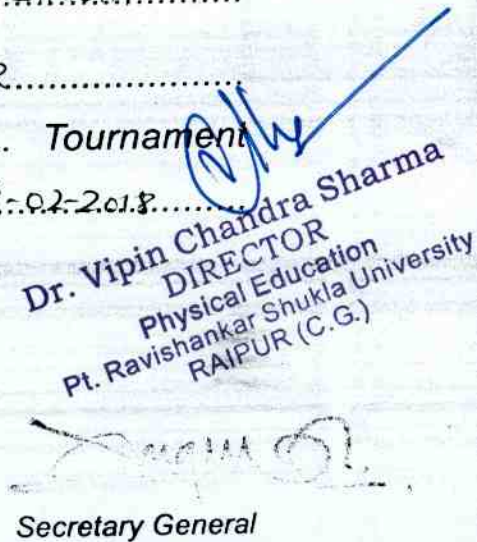 Tournament
-02-2018
Dr. Vipin Chandra Sharma
DIRECTOR
Physical Education
Pt. Ravishankar Shukla University
RAIPUR (C.G.)
Secretary General